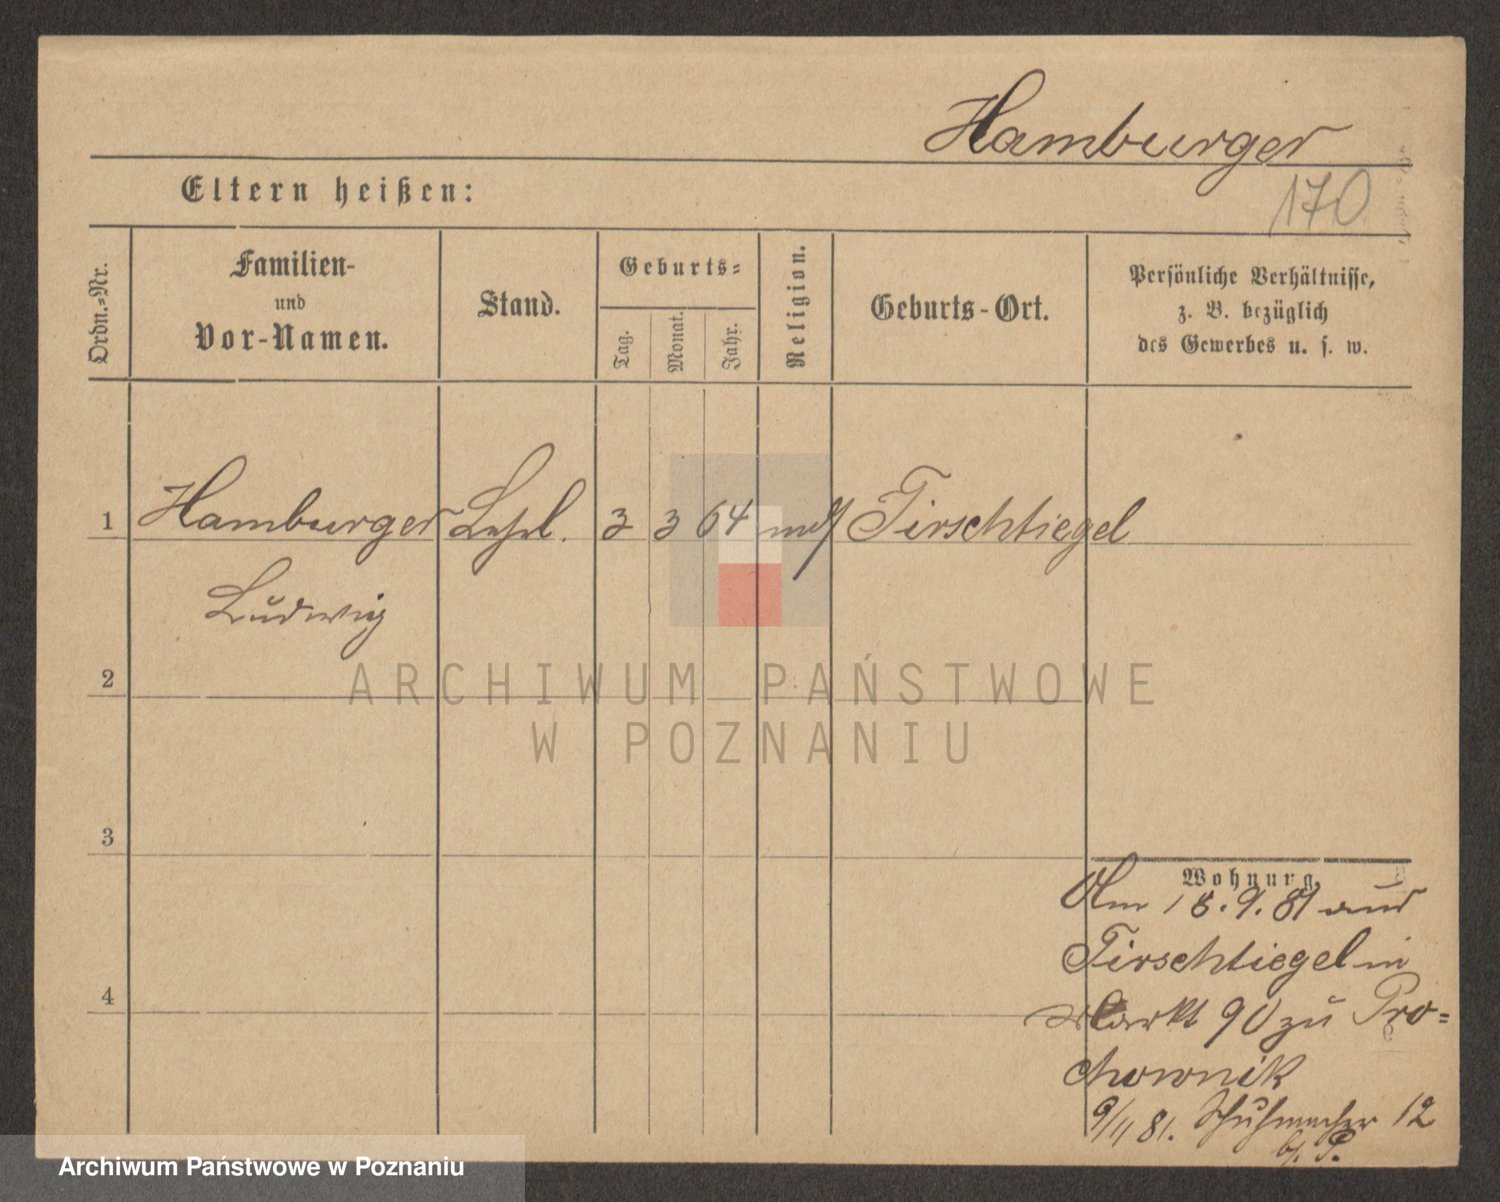 Hamburger
170
Eltern heißen:
Ordn.-Nr.
Familien-
und
Vor-Namen.
Stand.
Geburts-
Tag.
Monat.
Jahr.
Religion.
Geburts-Ort.
Persönliche Verhältnisse,
z. B. bezüglich
des Gewerbes u. s. w.
1 Hamburger Lehrl. 3 3 64 Tirschtiegel
Ludwig
2
ARCHIWUM PAŃSTWOWE
W POZNANIU
3
Wohnung.
Am 18.9.81 aus
Tirschtiegel in
Markt 90 zu Pro-
chownik
9/11 81. Schuhmacher 12
b/. P.
4
Archiwum Państwowe w Poznaniu